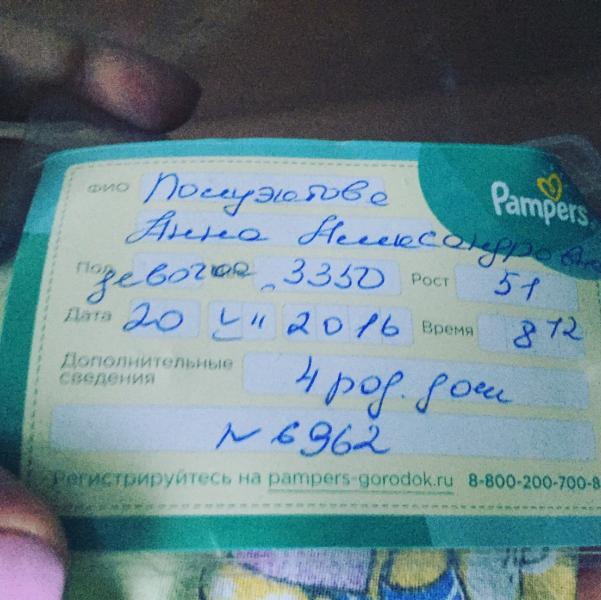 Pampers
ФИО
Анна Александровна
Пол девочка 3350 Рост 51
Дата 20 VII 2016 Время 8 12
Дополнительные 4 род. дом
сведения
N 6962
Регистрируйтесь на pampers-gorodok.ru 8-800-200-700-8